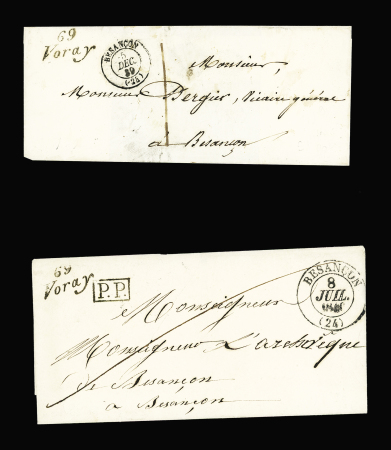 69
Voray
BESANÇON
5
DEC.
39
(24)
Monsieur,
Monsieur Bergier, Vicaire général
à Besançon
69
Voray
P.P.
BESANÇON
8
JUIL.
(24)
Monseigneur
Monseigneur L'archevêque
de Besançon
à Besançon